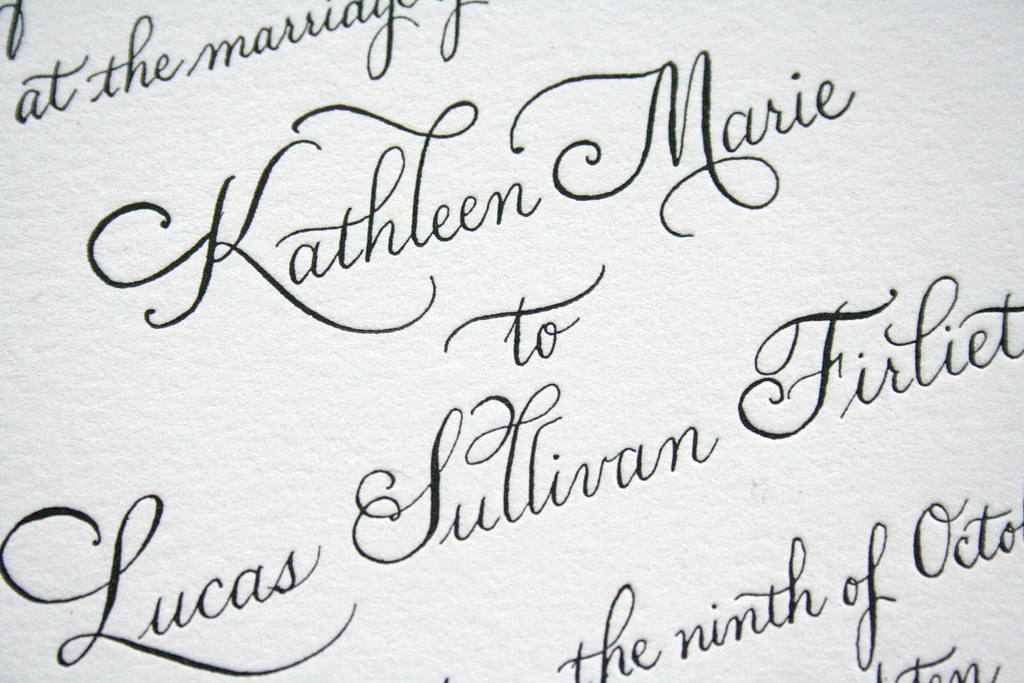 at the marriage of
Kathleen Marie
to
Lucas Sullivan Firliet
the ninth of
ten